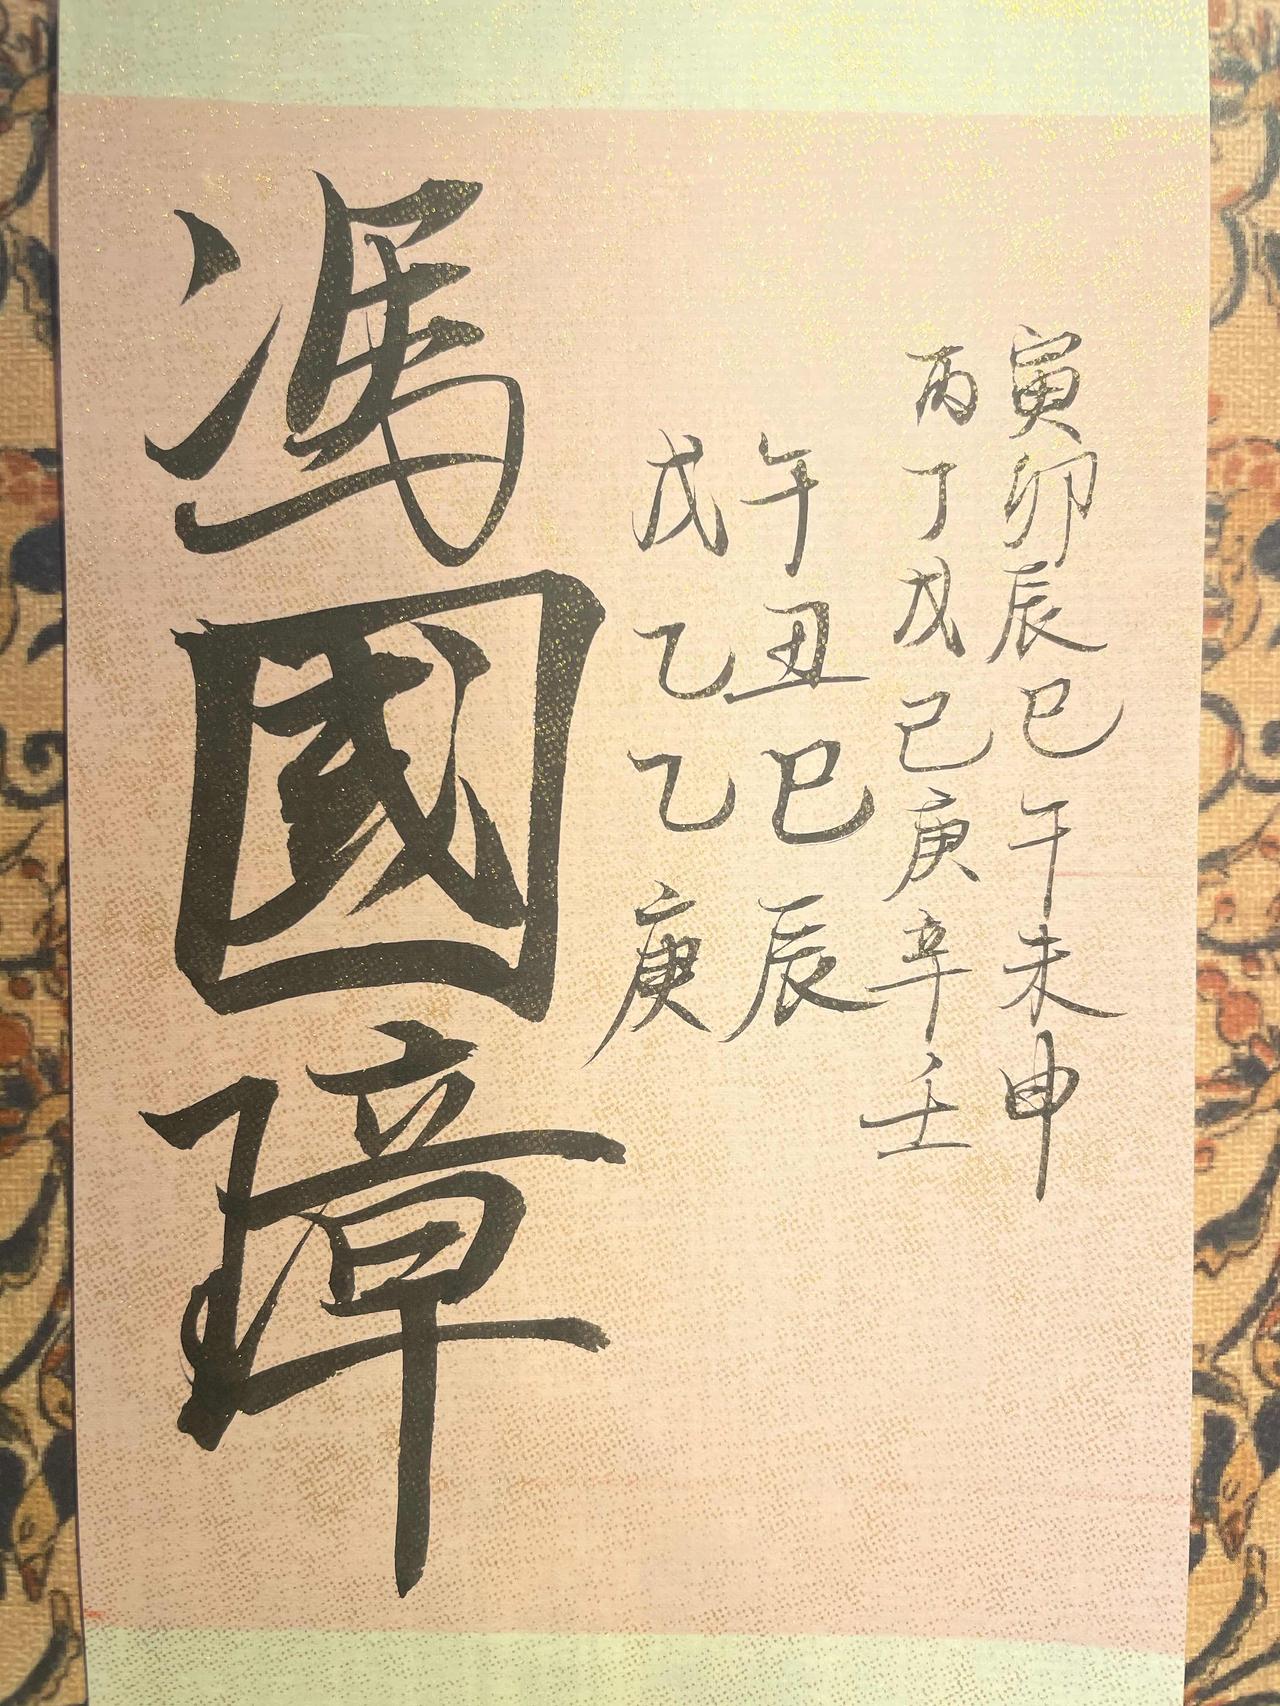 寅卯辰巳午未申
丙丁戊己庚辛壬
午丑巳辰
戊乙乙庚
馮國璋